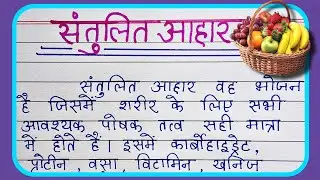 संतुलित आहार
संतुलित आहार वह भोजन
है जिसमें शरीर के लिए सभी
आवश्यक पोषक तत्व सही मात्रा
में होते हैं। इसमें कार्बोहाइड्रेट,
प्रोटीन, वसा, विटामिन, खनिज